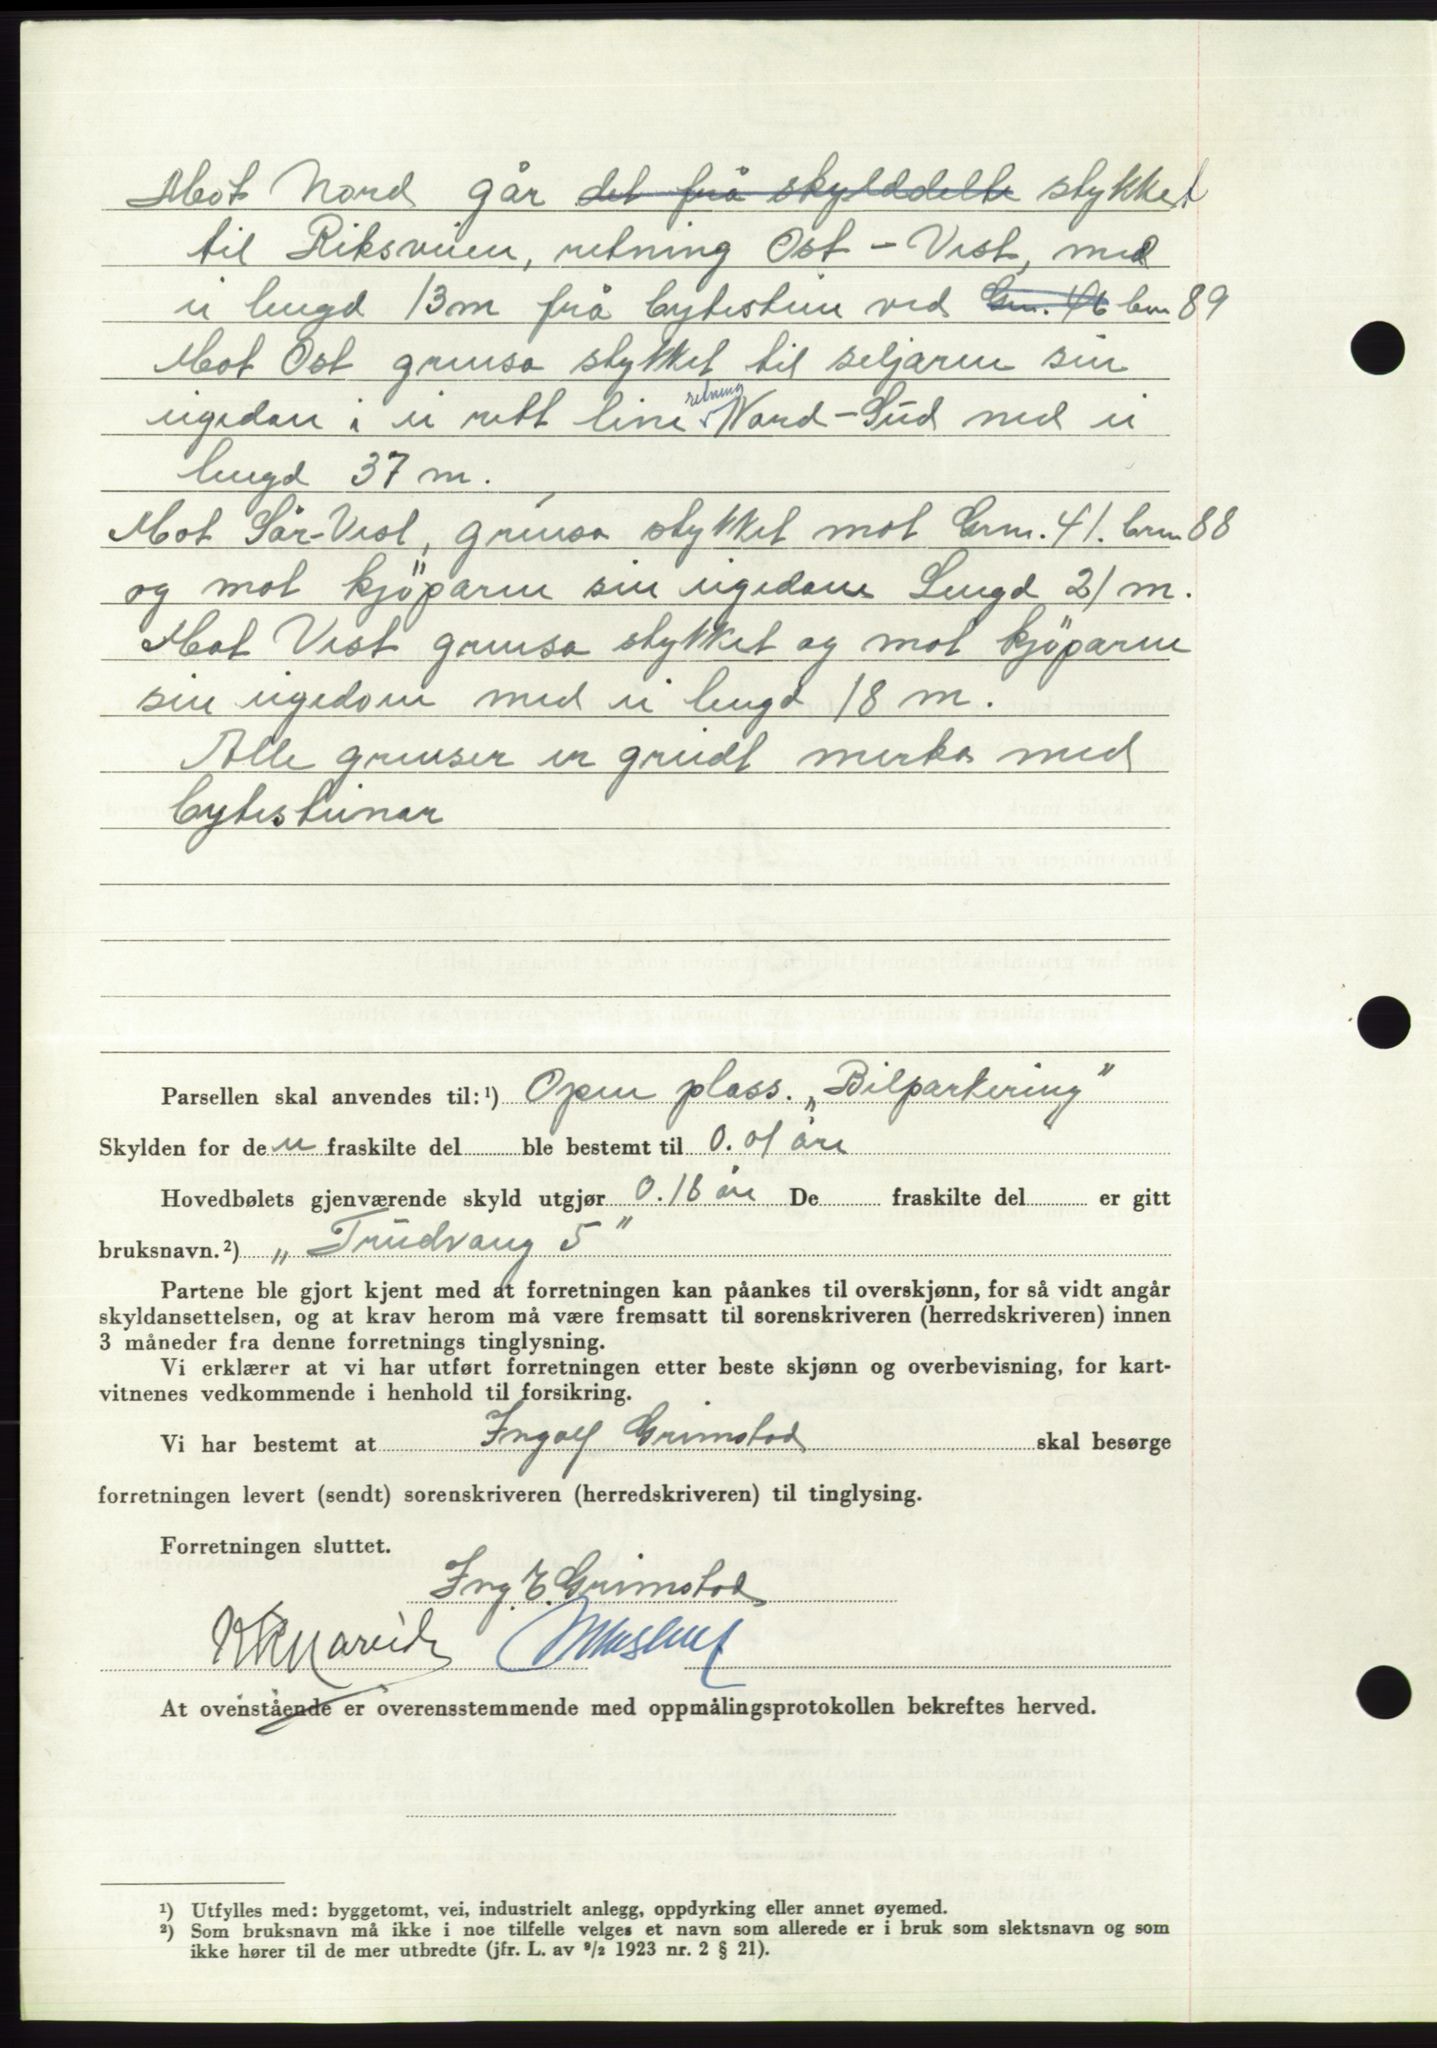 Mot Nord går det frå skylddelte stykket
til Riksveien, retning Ost – Vest, med
ei lengd 13m frå bytestein ved Gm. 46 bm 89
Mot Ost grensa stykket til seljaren sin
eigedom i ei rett line retning Nord – Sud med ei
lengd 37 m.
Mot Sör-Vest, grensa stykket mot Grm. 41. brm 88
og mot kjöparen sin eigedom Lengd 21 m.
Mot Vest grensa stykket og mot kjöparen
sin eigedom med ei lengd 18 m.
Alle grenser er greidt merka med
bytesteinar
Parsellen skal anvendes til: ¹) Open plass. „Bilparkering”
Skylden for den fraskilte del ble bestemt til 0.01 öre
Hovedbølets gjenværende skyld utgjør 0.18 öre De fraskilte del er gitt
bruksnavn. ²) „Trudvang 5”
Partene ble gjort kjent med at forretningen kan påankes til overskjønn, for så vidt angår
skyldansettelsen, og at krav herom må være fremsatt til sorenskriveren (herredskriveren) innen
3 måneder fra denne forretnings tinglysning.
Vi erklærer at vi har utført forretningen etter beste skjønn og overbevisning, for kart-
vitnenes vedkommende i henhold til forsikring.
Vi har bestemt at Ingolf Grimstad skal besørge
forretningen levert (sendt) sorenskriveren (herredskriveren) til tinglysing.
Forretningen sluttet.
Ing. E. Grimstad
At ovenstående er overensstemmende med oppmålingsprotokollen bekreftes herved.
¹) Utfylles med: byggetomt, vei, industrielt anlegg, oppdyrking eller annet øyemed.
²) Som bruksnavn må ikke i noe tilfelle velges et navn som allerede er i bruk som slektsnavn og som
ikke hører til de mer utbredte (jfr. L. av ⁹/₂ 1923 nr. 2 § 21).